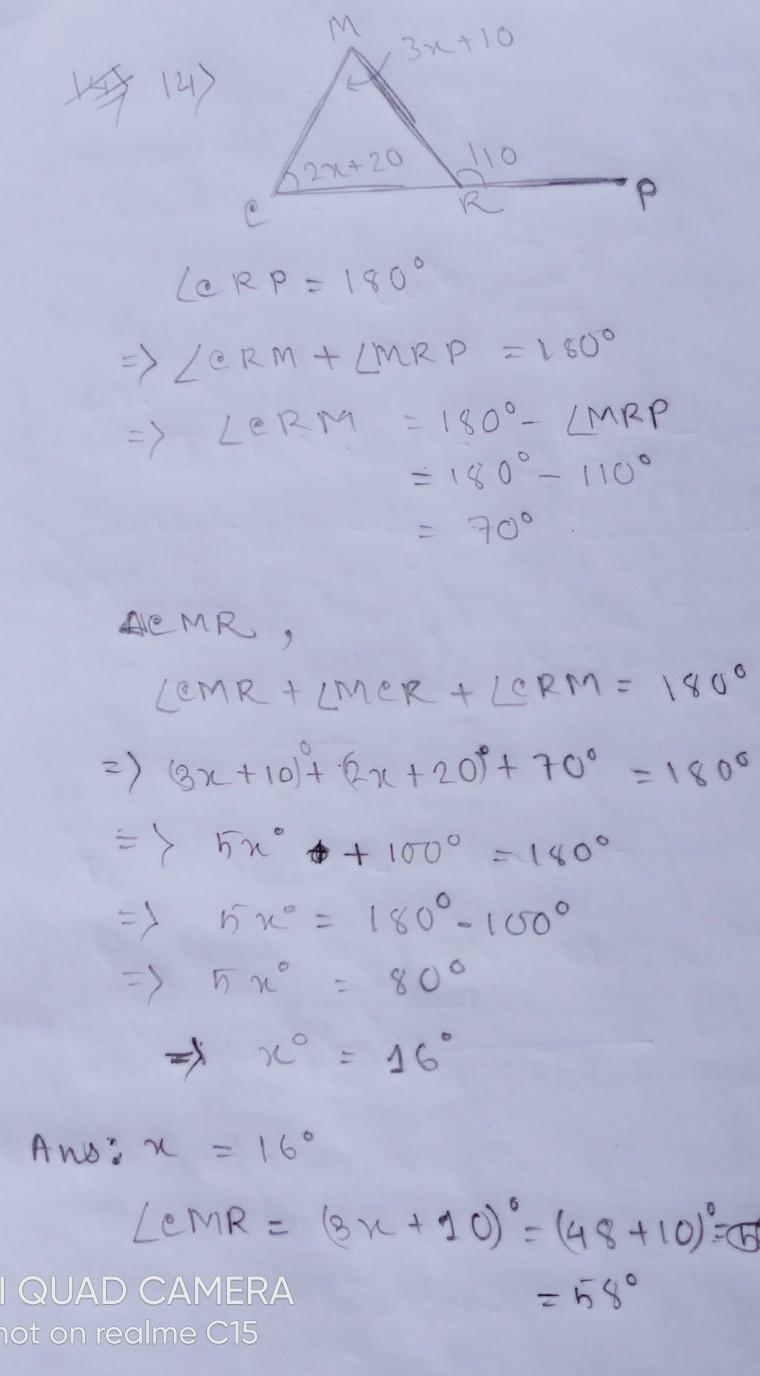 M
3x+10
14)
2x+20
110
C
R
P
∠CRP = 180°
=> ∠CRM + ∠MRP = 180°
=> ∠CRM = 180° - ∠MRP
= 180° - 110°
= 70°
△CMR,
∠CMR + ∠MCR + ∠CRM = 180°
=> (3x+10)° + (2x+20)° + 70° = 180°
=> 5x° + 100° = 180°
=> 5x° = 180° - 100°
=> 5x° = 80°
=> x° = 16°
Ans: x = 16°
∠CMR = (3x+10)° = (48+10)° =
= 58°
I QUAD CAMERA
hot on realme C15